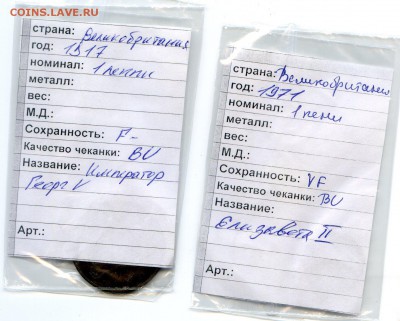 COINS.LAVE.RU
страна: Великобритания
год: 1917
номинал: 1 пенни
металл:
вес:
М.Д.:
Сохранность: F-
Качество чеканки: BU
Название: Император
Георг V
Арт.:
страна: Великобритания
год: 1971
номинал: 1 пени
металл:
вес:
М.Д.:
Сохранность: VF
Качество чеканки: BU
Название:
Елизавета II
Арт.: